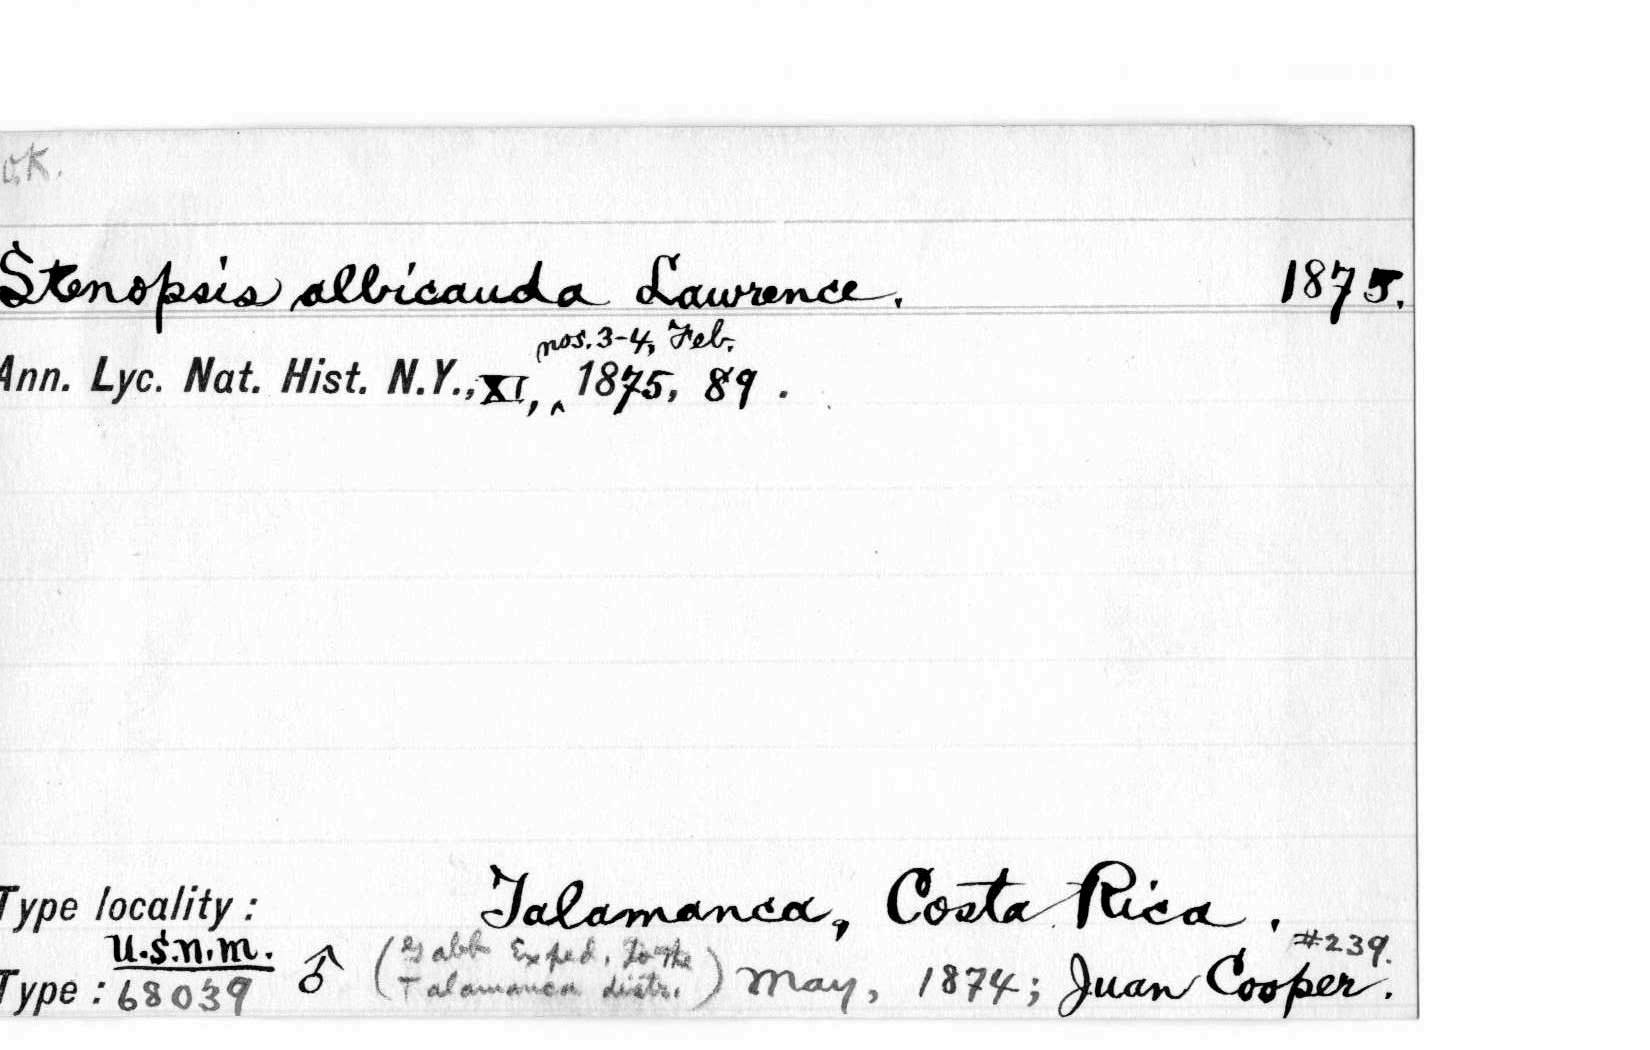 ok.
Stenopsis albicauda Lawrence. 1875.
nos. 3-4, Feb.
Ann. Lyc. Nat. Hist. N.Y., XI, ^ 1875, 89 .
Type locality : Talamanca, Costa Rica .
U.S.N.M. #239.
Type : 68039 ♂ (Gabb Exped. to the Talamanca distr.) May, 1874; Juan Cooper.